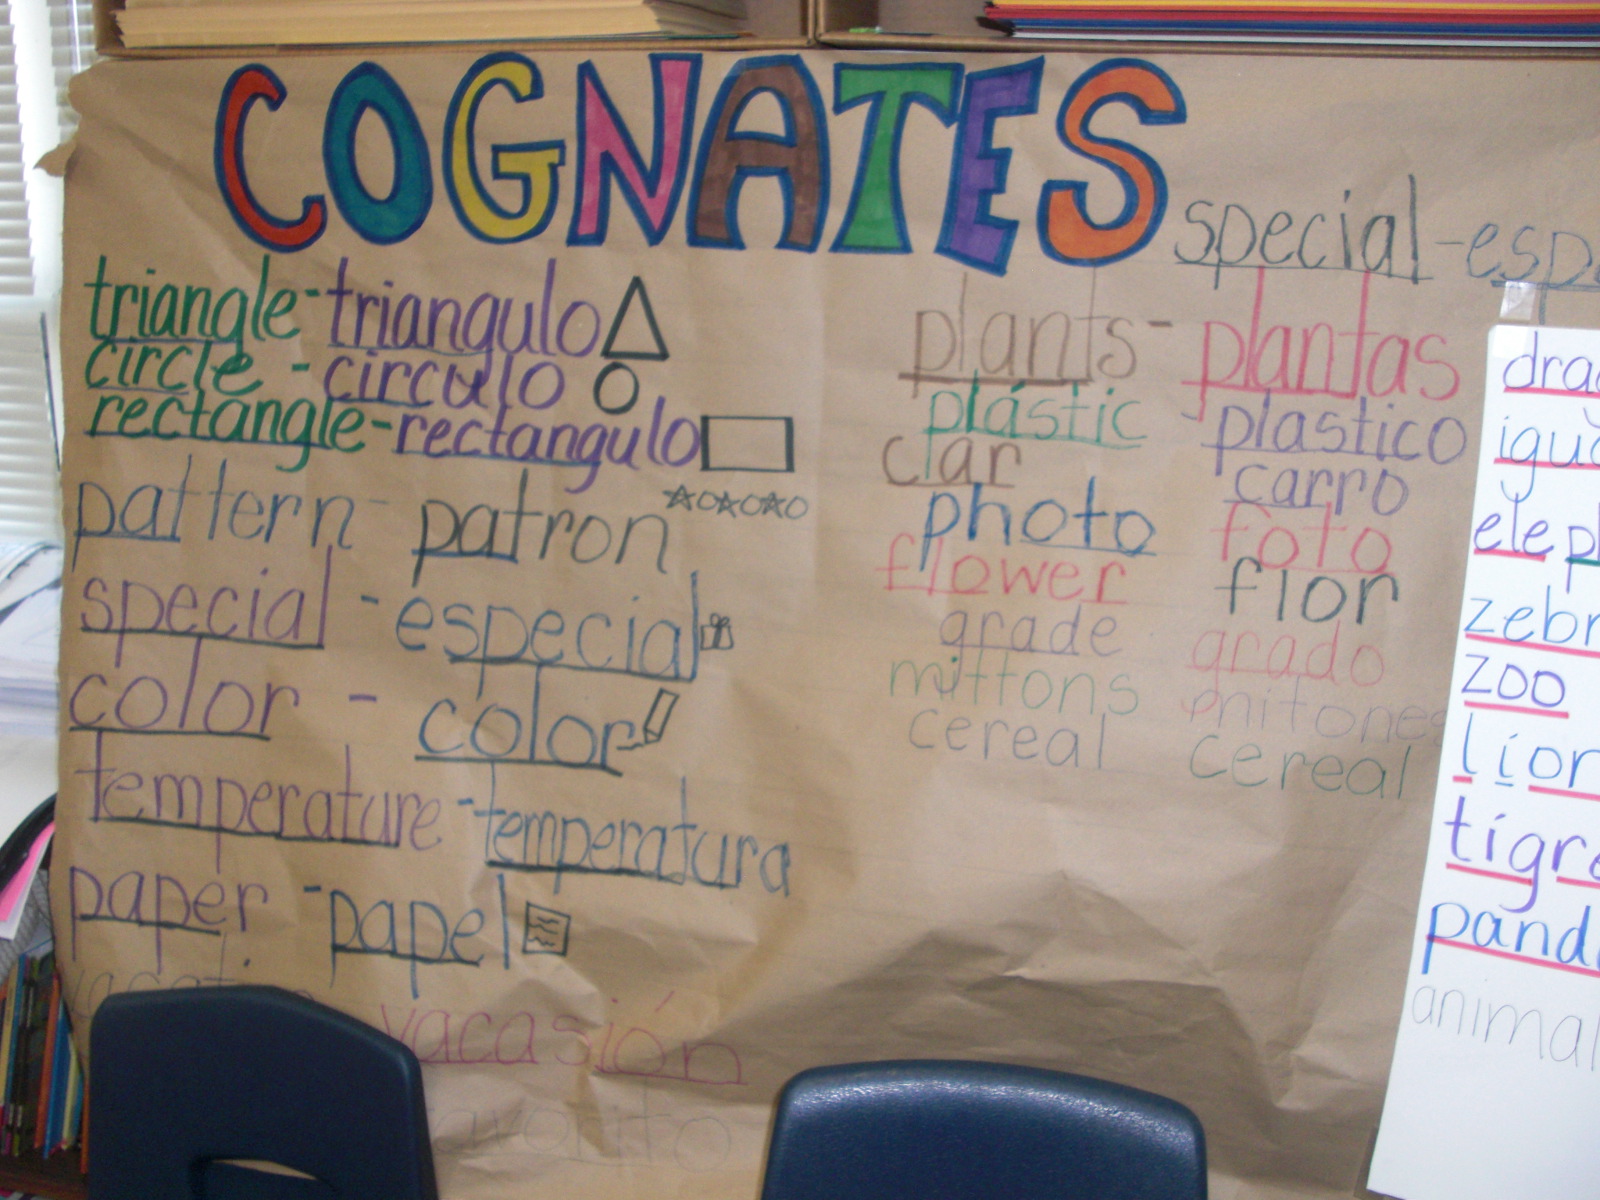 COGNATES
special - esp
triangle - triangulo
circle - circulo
rectangle - rectangulo
pattern - patron
special - especial
color - color
temperature - temperatura
paper - papel
vacasión
plants - plantas
plástic - plastico
car carro
photo foto
flower flor
grade grado
mittons mitones
cereal cereal
drag
igu
eleph
zebr
zoo
lion
tigre
panda
animal